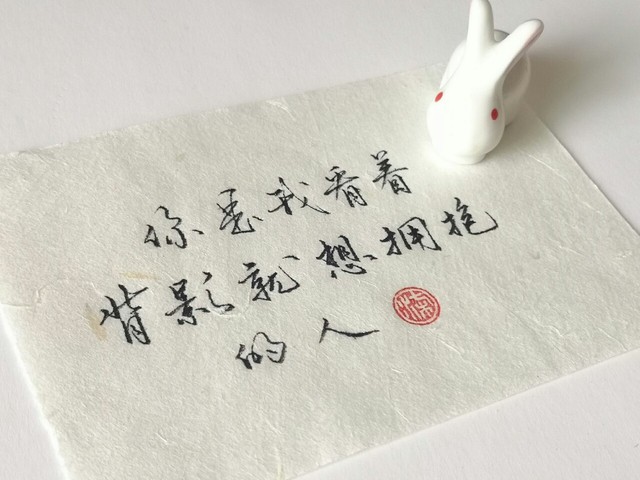 你是我看着
背影就想拥抱
的人